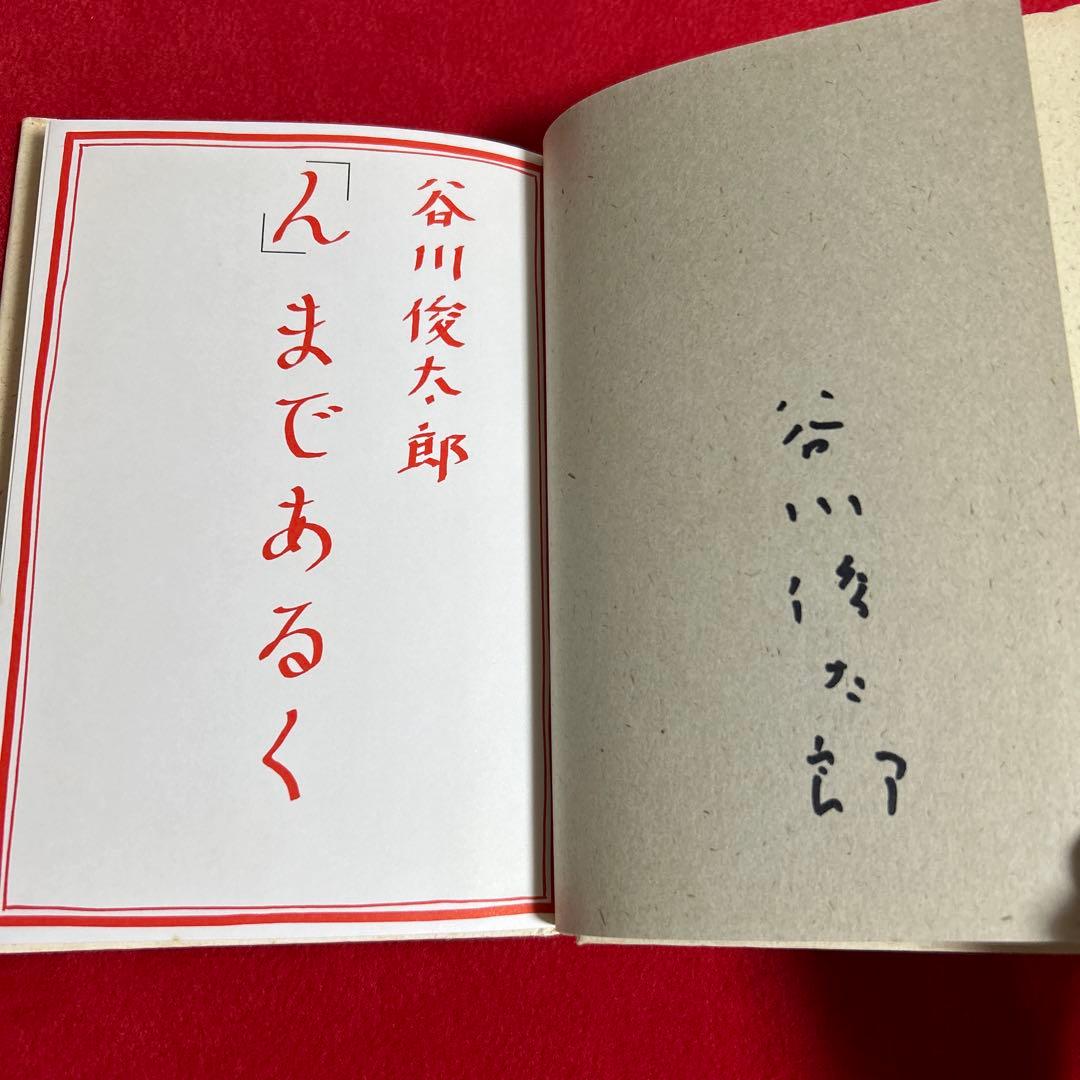 谷川俊太郎
谷川俊太郎
「ん」まであるく